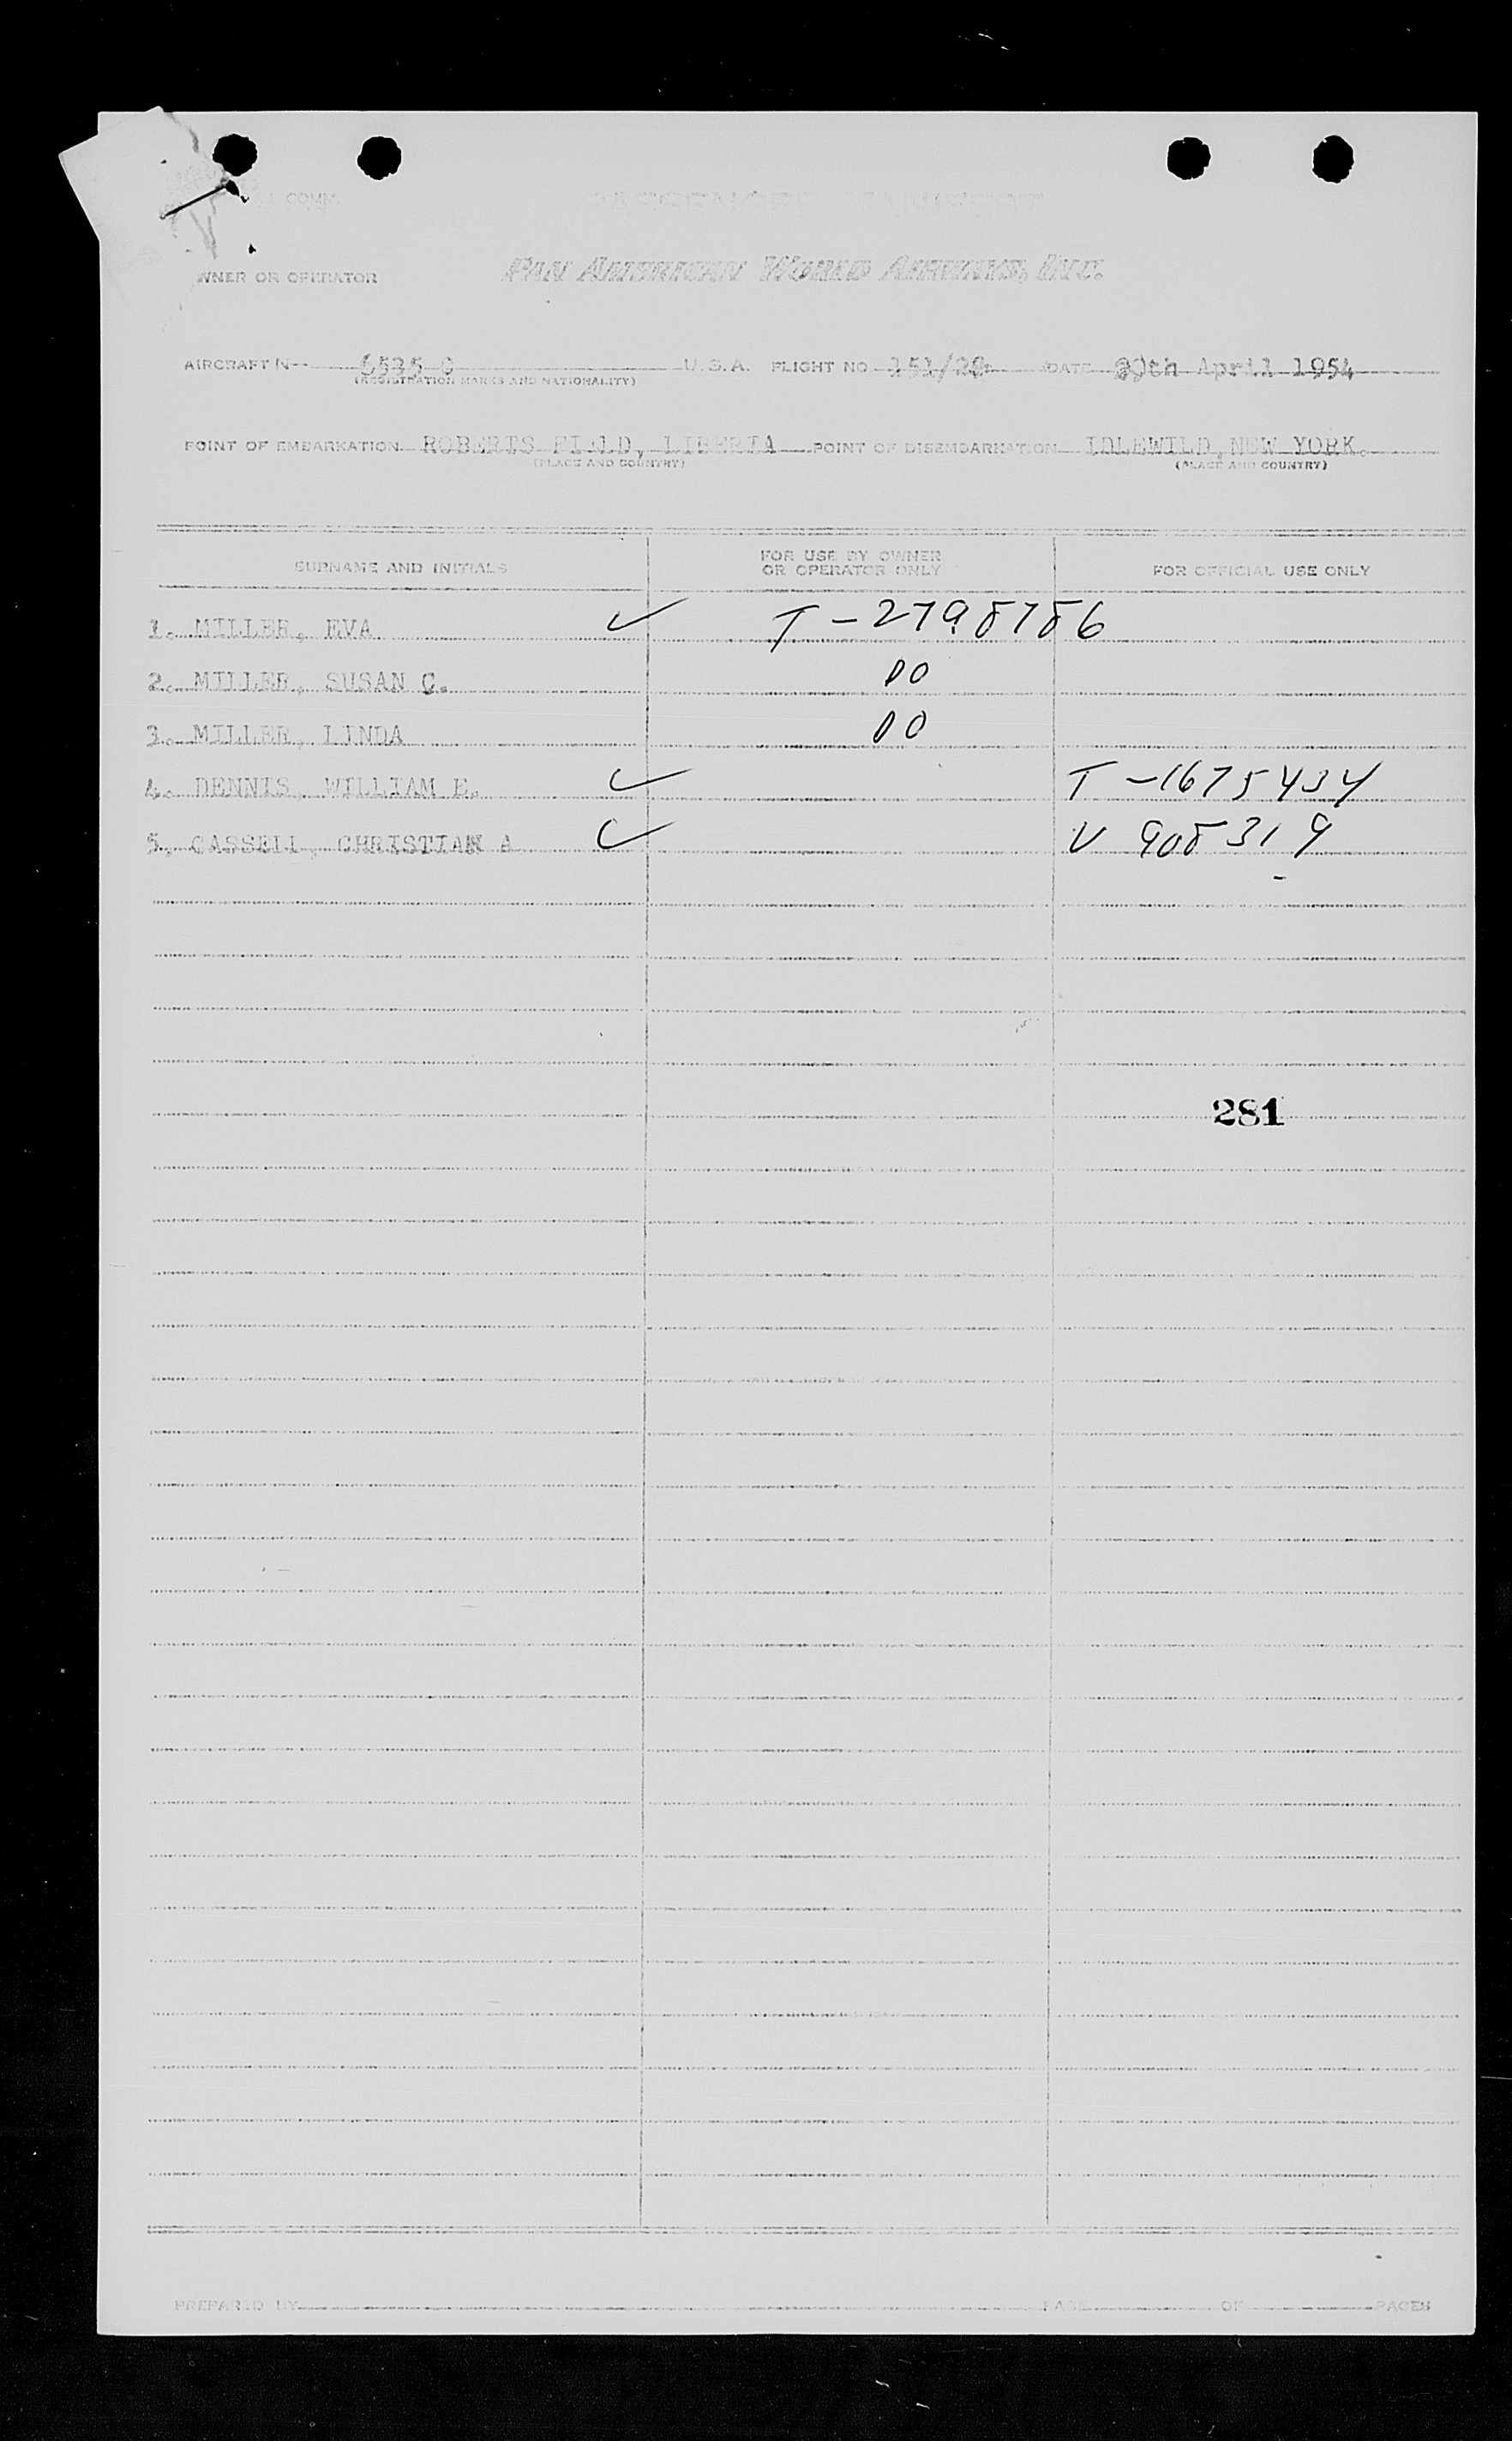 COMM. PASSENGER MANIFEST
WNER OR OPERATOR PAN AMERICAN WORLD AIRWAYS, INC.
AIRCRAFT N-- 6535 C U.S.A. FLIGHT NO. 151/29 DATE 30th April 1954
(REGISTRATION MARKS AND NATIONALITY)
POINT OF EMBARKATION ROBERTS FIELD, LIBERIA POINT OF DISEMBARKATION IDLEWILD, NEW YORK.
(PLACE AND COUNTRY) (PLACE AND COUNTRY)
SURNAME AND INITIALS FOR USE BY OWNER OR OPERATOR ONLY FOR OFFICIAL USE ONLY
1. MILLER, EVA ✓ T-2798786
2. MILLER, SUSAN C. DO
3. MILLER, LINDA DO
4. DENNIS, WILLIAM E. ✓ T-1675434
5. CASSELL, CHRISTIAN A ✓ V 908319
281
PREPARED BY PAGE OF PAGES